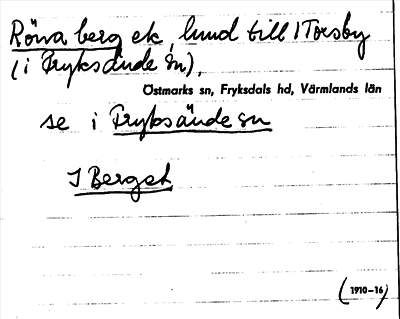 Röwa berg ek, lund till 1 Torsby
(i Fryksände sn),
Östmarks sn, Fryksdals hd, Värmlands län
se i Fryksände sn
1 Berget
(1910-16)